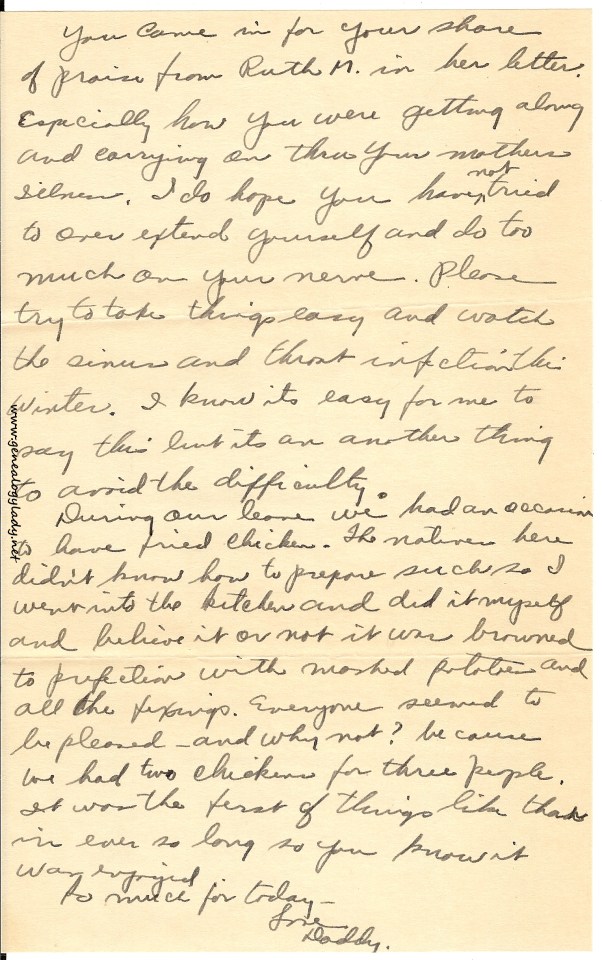 You came in for your share
of praise from Ruth M. in her letter.
Especially how you were getting along
and carrying on thru your mothers
illness. I do hope you have not tried
to over extend yourself and do too
much on your nerve. Please
try to take things easy and watch
the sinus and throat infection this
winter. I know its easy for me to
say this but its an another thing
to avoid the difficulty.
During our leave we had an occasion
to have fried chicken. The natives here
didn't know how to prepare such so I
went into the kitchen and did it myself
and believe it or not it was browned
to prefection with mashed potatoes and
all the fixings. Everyone seemed to
be pleased - and why not? because
we had two chickens for three people.
It was the ferst of things like that
in ever so long so you know it
was enjoyed
So much for today -
Love
Daddy.
www.genealogylady.net